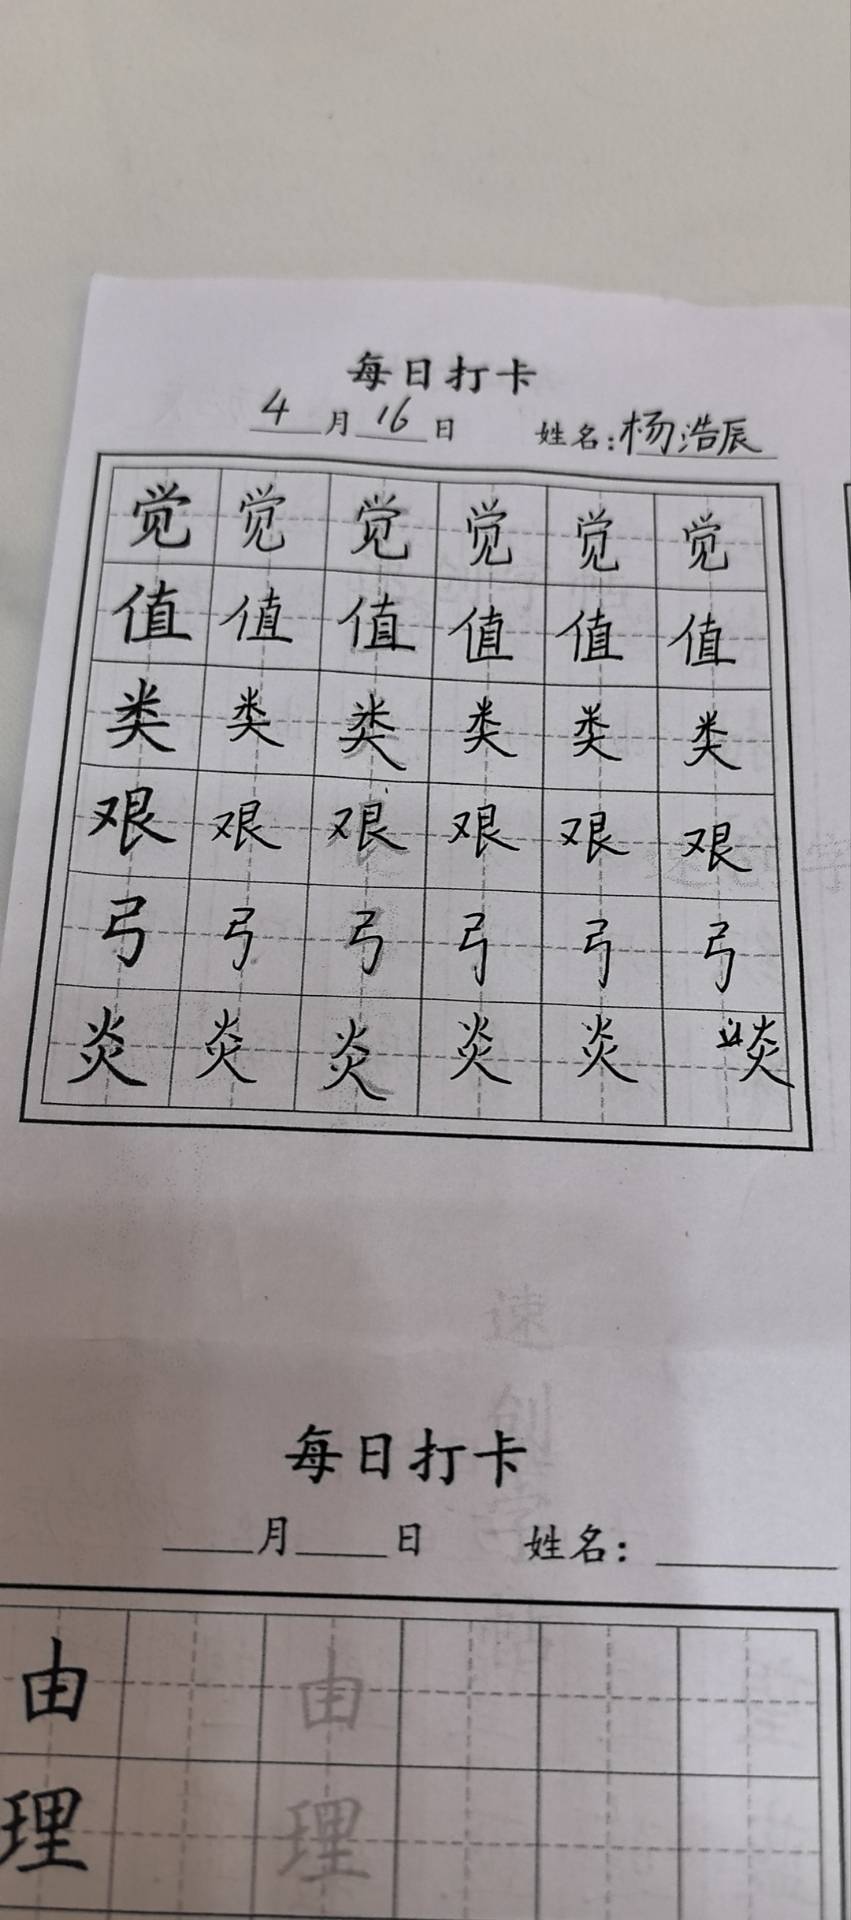 每日打卡
4月16日 姓名:杨浩辰
觉觉觉觉觉觉
值值值值值值
类类类类类类
艰艰艰艰艰艰
弓弓弓弓弓弓
炎炎炎炎炎炎
速创字帖
每日打卡
月 日 姓名:
由 由
理 理